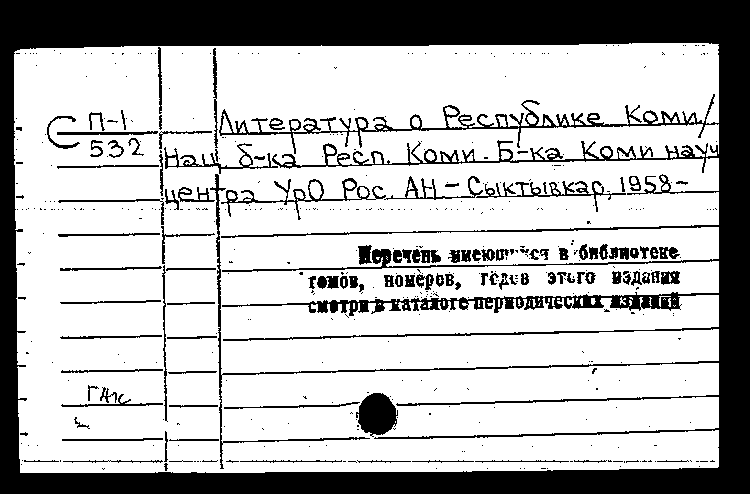 П-1
С 532
Литература о Республике Коми /
Нац. б-ка Респ. Коми. Б-ка Коми науч
центра УрО Рос. АН - Сыктывкар, 1958-
Перечень имеющихся в библиотеке
томов, номеров, годов этого издания
смотри в каталоге периодических изданий